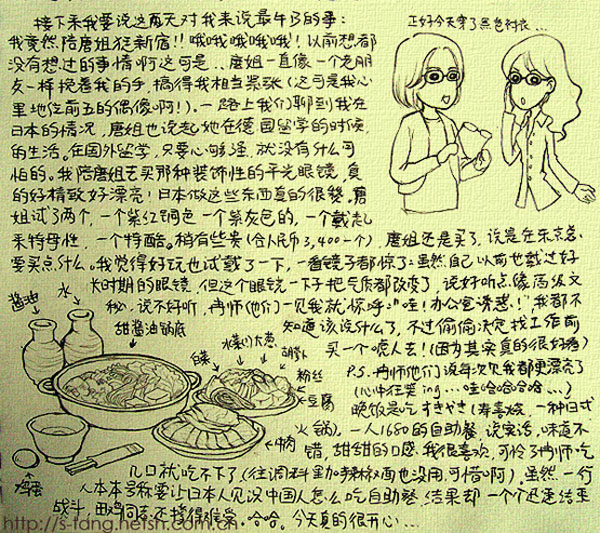 接下来我要说这两天对我来说最牛B的事:
我竟然陪唐姐逛新宿!!哦哦哦哦哦!以前想都
没有想过的事情啊这可是..唐姐一直像一个老朋
友一样挽着我的手,搞得我相当紧张(这可是我心
里地位前五的偶像啊!)。一路上我们聊到我在
日本的情况,唐姐也说起她在德国留学的时候
的生活。在国外留学,只要心够强,就没有什么可
怕的。我陪唐姐去买那种装饰性的平光眼镜,真
的好精致好漂亮!日本做这些东西真的很赞。唐
姐试了两个,一个紫红铜色一个紫灰色的,一个戴起
来特母性,一个特酷。稍有些贵(合人民币3,400一个),唐姐还是买了,说是在东京总
要买点什么。我觉得好玩也试戴了一下,一看镜子都惊了:虽然自己以前也戴过好
长时期的眼镜,但这个眼镜一下子把气质都改变了,说好听点像高级文
秘,说不好听,冉师(他们)一见我就惊呼:"哇!办公室诱惑!",我都不
知道该说什么了,不过偷偷决定找工作前
买一个唬人去!(因为其实真的很好看)
P.S.冉师他们说每次见我都更漂亮了
(心中狂笑ing...哇哈哈哈哈...)
晚饭是吃すきやき(寿喜烧,一种日式
火锅),一人1680的自助餐,说实话,味道不
错,甜甜的口感我很喜欢,可怜了冉师吃
几口就吃不下了(往调料里加辣椒面也没用,可惜啊),虽然一行
人本来号称要让日本人见识中国人怎么吃自助餐,结果却一个个迅速结束
战斗,田鸡同志还撑得难受。哈哈。今天真的很开心...
正好今天穿了黑色衬衣...
酱油
水
甜酱油锅底
白菜
水菜
大葱
胡萝卜
粉丝
豆腐
牛肉
鸡蛋
http://s-fang.hetsh.com.cn